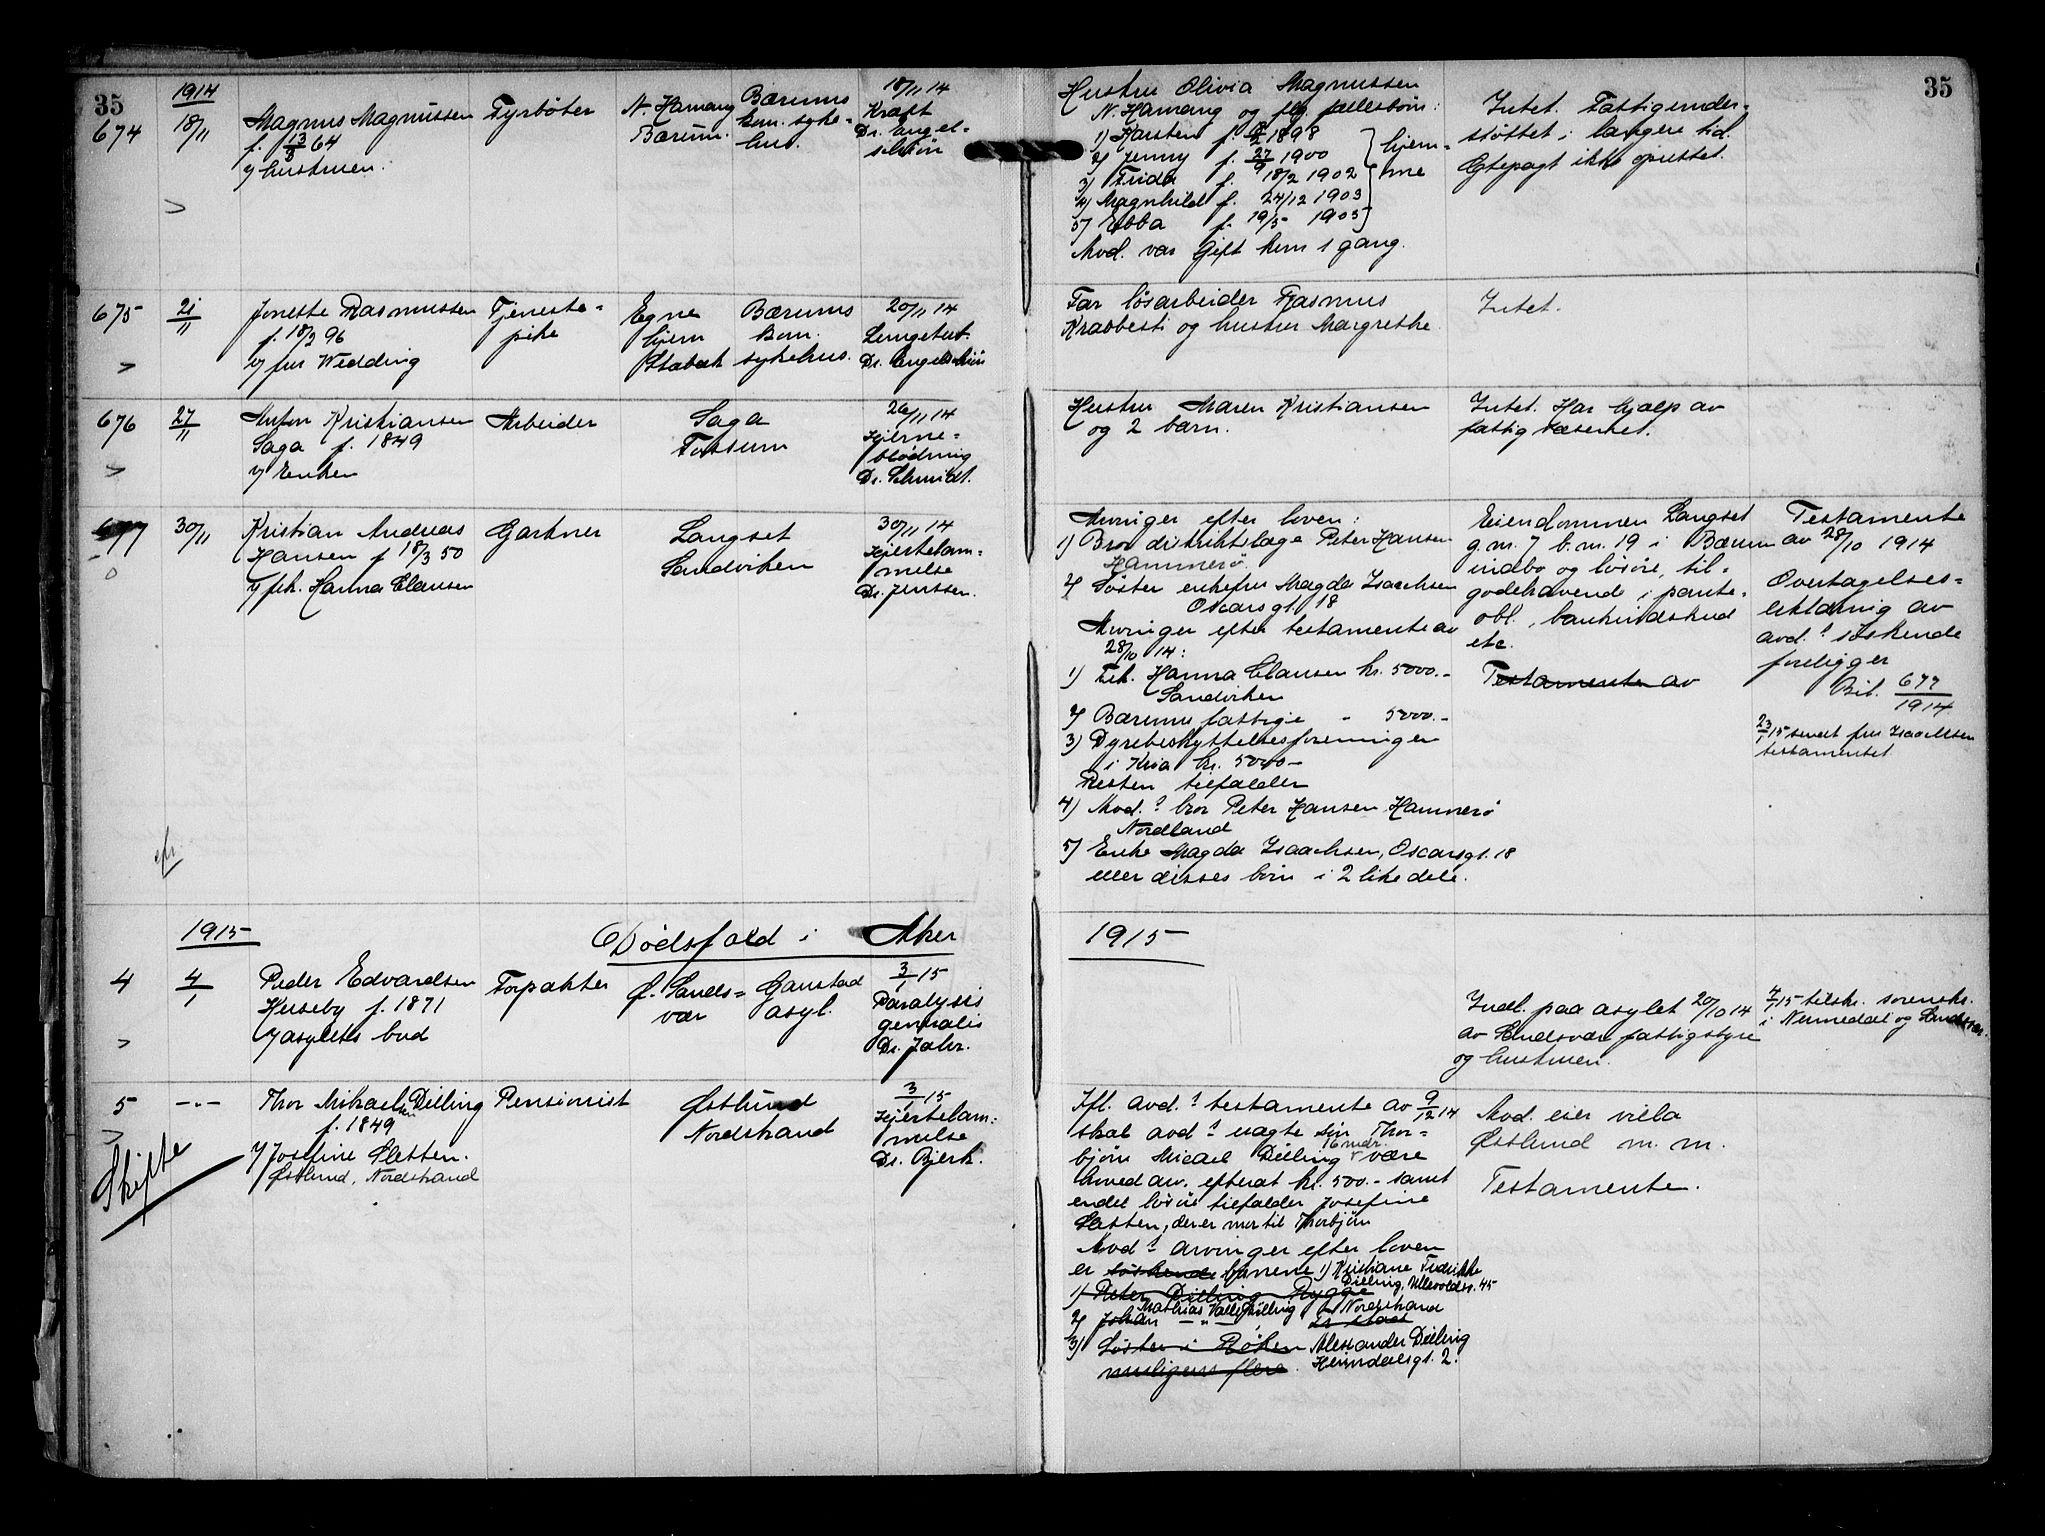 35
1914
674
18/11
Magnus Magnussen
f. 13/3 64
v/ hustruen.
Fyrbøter
N. Hamang
Bærum.
Bærums
kom. syke-
hus.
18/11 14
Kræft
Dr. Engel-
schiøn
Hustru Olivia Magnussen
N. Hamang og flg. fællesbørn:
1) Karsten f. 1898
2) Jenny f. 27/9 1900
3) Frida f. 18/2 1902
4) Magnhild f. 24/12 1903
5) Ebba f. 19/5 1905
hjem-
me
Avd. var gift kun 1 gang.
Intet. Fattigunder-
støttet i længere tid.
Egtepagt ikke oprettet.
35
675
21/11
Jonette Rasmussen
f. 18/3 96
v/ fru Wedding
Tjeneste-
pike
Egne
hjem
Stabæk
Bærums
kom.
sykehus.
20/11 14
Lungetub.
Dr. Engelschiøn
Far løsarbeider Rasmus
Krabbesti og hustru Margrethe.
Intet.
676
27/11
Anton Kristiansen
Saga f. 1849
v/ Enken
Arbeider
Saga
Fossum
26/11 14
Hjerne-
blødning
Dr. Schmidt.
Hustru Maren Kristiansen
og 2 barn.
Intet. Har hjælp av
fattigvæsenet.
677
30/11
Kristian Andreas
Hansen f. 18/3 50
v/ frk. Hanna Clausen
Gartner
Langset
Sandviken
30/11 14
Hjertelam-
melse
Dr. Jenssen.
Arvinger efter loven:
1) Bror distriktslæge Peter Hansen
Hammerø.
2) Søster enkefru Magda Isaachsen
Oscarsgt. 18
Arvinger efter testamente av
28/10 14:
1) Frk. Hanna Clausen kr. 5000.-
Sandviken
2) Bærums fattige - 5000.-
3) Dyrebeskyttelsesforeningen
i Kria kr. 5000-
Resten tilfalder
4) Avd.s bror Peter Hansen Hammerø
Nordland
5) Enke Magda Isaachsen, Oscarsgt. 18
eller disses børn i 2 like dele.
Eiendommen Langset
g.nr. 7 b.nr. 19 i Bærum
indbo og løsøre, til-
godehavende i pante-
obl., bankindskud
etc.
Testamente av
Testamente
av 28/10 1914
Overtagelses-
erklæring av
avd.s søskende
foreligger
Bil. 677/1914
23/1 15 sendt fru Isaachsen
testamentet
efr.
1915
Dødsfald i Aker
1915
4
4/1
Peder Edvardsen
f. 1871
v/ asylets bud
Forpakter
Ø. Sands-
vær
Gaustad
asyl.
3/1 15
Paralysis
generalis
Dr. Jahr.
Indl. paa asylet 20/10 14
av Sandsvær fattigstyre
og hustruen.
7/1 15 tilskr. sorenskr.
i Numedal og Sandsvær.
5
-"-
Thor Mikaelsen Dilling
f. 1849
v/ Josefine Sletten.
Østlund, Nordstrand
Skifte
Pensionist
Østlund
Nordstrand
3/1 15
Hjertelam-
melse
Dr. Bjerk.
Ifl. avd.s testamente av 9/12 14
skal avd.s uegte søn Thor-
bjørn Micael Dilling 6 mdr. være
hoved arv. efterat kr. 500.- samt
endel løsøre tilfalder Josefine
Sletten, der er mor til Thorbjørn
Avd.s arvinger efter loven
er søskende barnene 1) Kristiane Fredrikke
Dilling, Ullevoldsv. 45
1) Peter Dilling Rygge
Mathias Valle Dilling Nordstrand
2) Johan -"-
3) Søster i Røken Alexander Dilling
muligens flere. Heimdalsgt. 2.
Avd. eier villa
Østlund m. m.
Testamente.